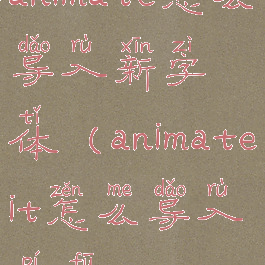 animate怎么
dǎo rù xīn zì
导入新字
tǐ
体（animate
zěn me dǎo rù
it怎么导入
pí fū